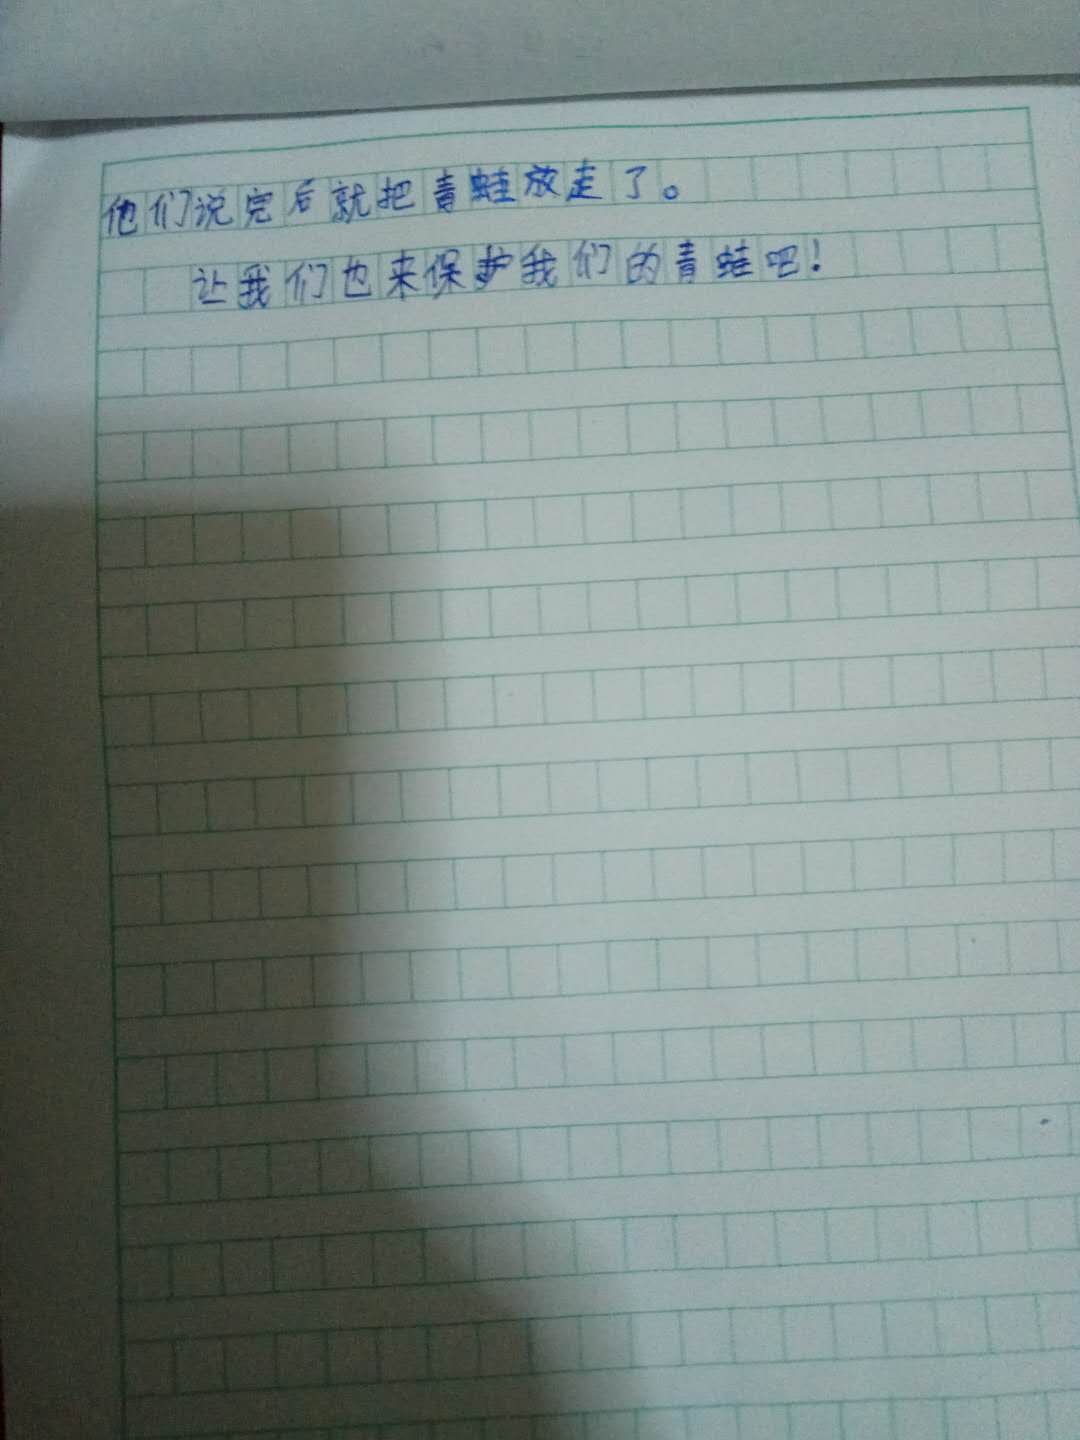 他们说完后就把青蛙放走了。
让我们也来保护我们的青蛙吧！